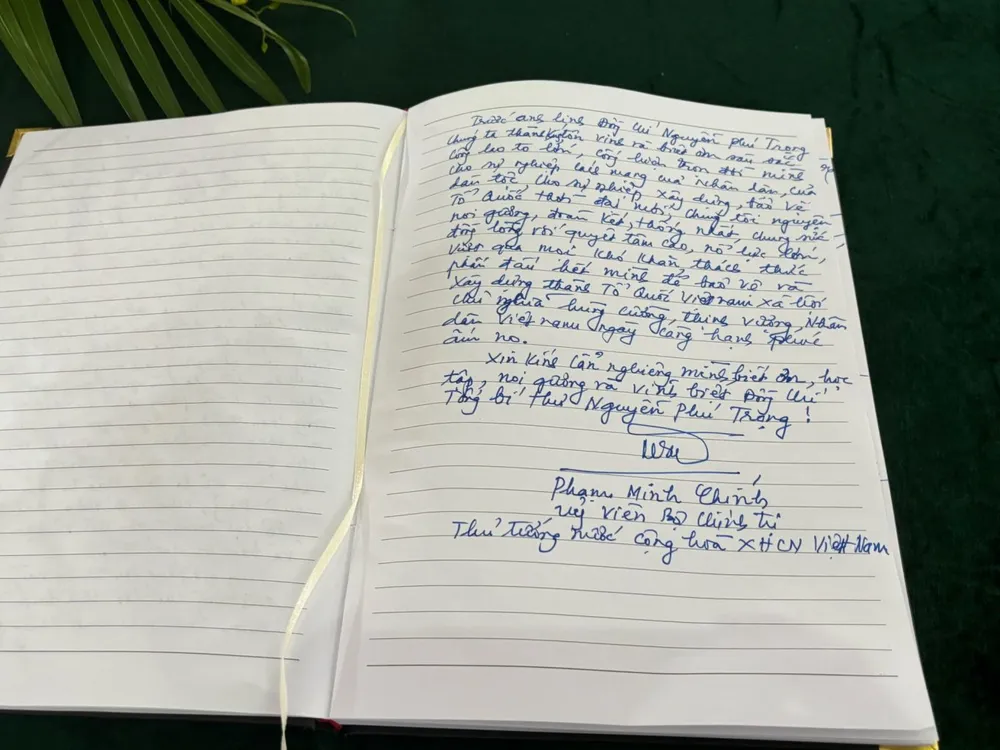 Trước anh linh Đồng chí Nguyễn Phú Trọng
chúng ta thành kính tôn vinh và biết ơn sâu sắc
công lao to lớn, cống hiến trọn đời mình
cho sự nghiệp cách mạng của nhân dân, của
dân tộc, cho sự nghiệp xây dựng, bảo vệ
Tổ Quốc thời đại mới, chúng tôi nguyện
noi gương, đoàn kết, thống nhất, chung sức
đồng lòng với quyết tâm cao, nỗ lực lớn,
vượt qua mọi khó khăn thách thức
phấn đấu hết mình để bảo vệ và
xây dựng thành Tổ Quốc Việt nam xã hội
chủ nghĩa hùng cường, thịnh vượng, Nhân
dân Việt nam ngày càng hạnh phúc
ấm no.
Xin kính cẩn nghiêng mình biết ơn, học
tập, noi gương và vĩnh biệt Đồng chí
Tổng bí thư Nguyễn Phú Trọng!
Phạm Minh Chính
Uỷ viên Bộ Chính trị
Thủ tướng nước cộng hoà XHCN Việt Nam